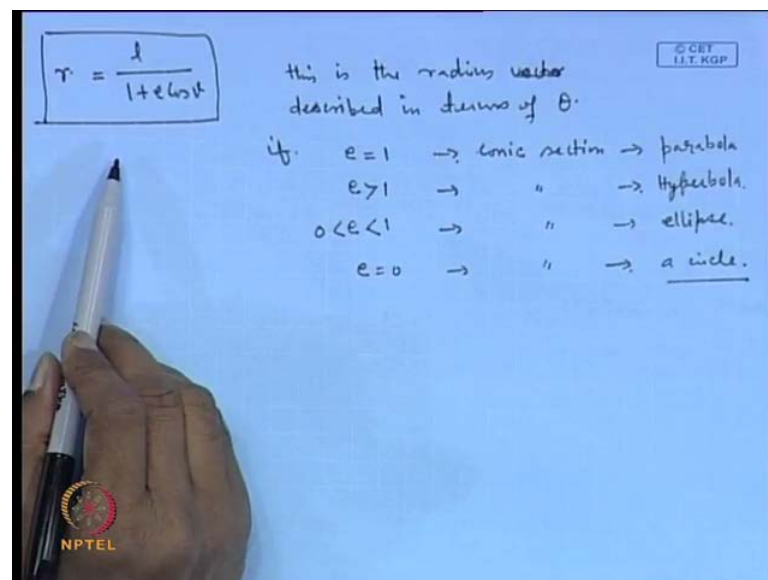 r = l / 1+e cos θ
this is the radius vector
described in terms of θ.
if. e=1 → conic section → parabola
e>1 → " → Hyperbola.
0<e<1 → " → ellipse.
e=0 → " → a circle.
© CET
I.I.T. KGP
NPTEL